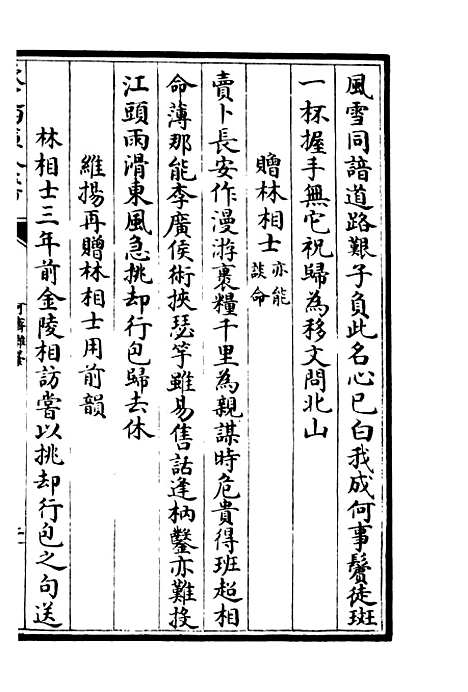 風雪同諳道路艱子負此名心已白我成何事鬢徒斑
一杯握手無它祝歸為移文問北山
贈林相士亦能談命
賣卜長安作漫游裹糧千里為親謀時危貴得班超相
命薄那能李廣侯術挾瑟竽雖易售詁逢枘鑿亦難投
江頭雨滑東風急挑却行包歸去休
維揚再贈林相士用前韻
林相士三年前金陵相訪嘗以挑却行包之句送